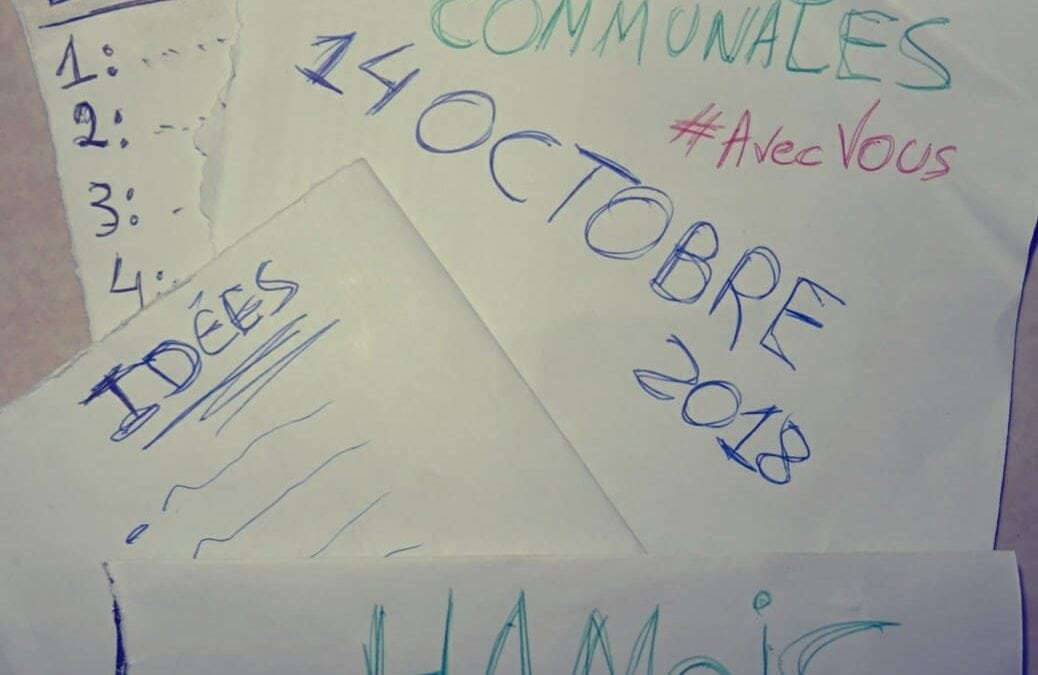 COMMUNALES
#AvecVous
14 OCTOBRE
2018
1:
2:
3:
4:
IDÉES
HAMOiS